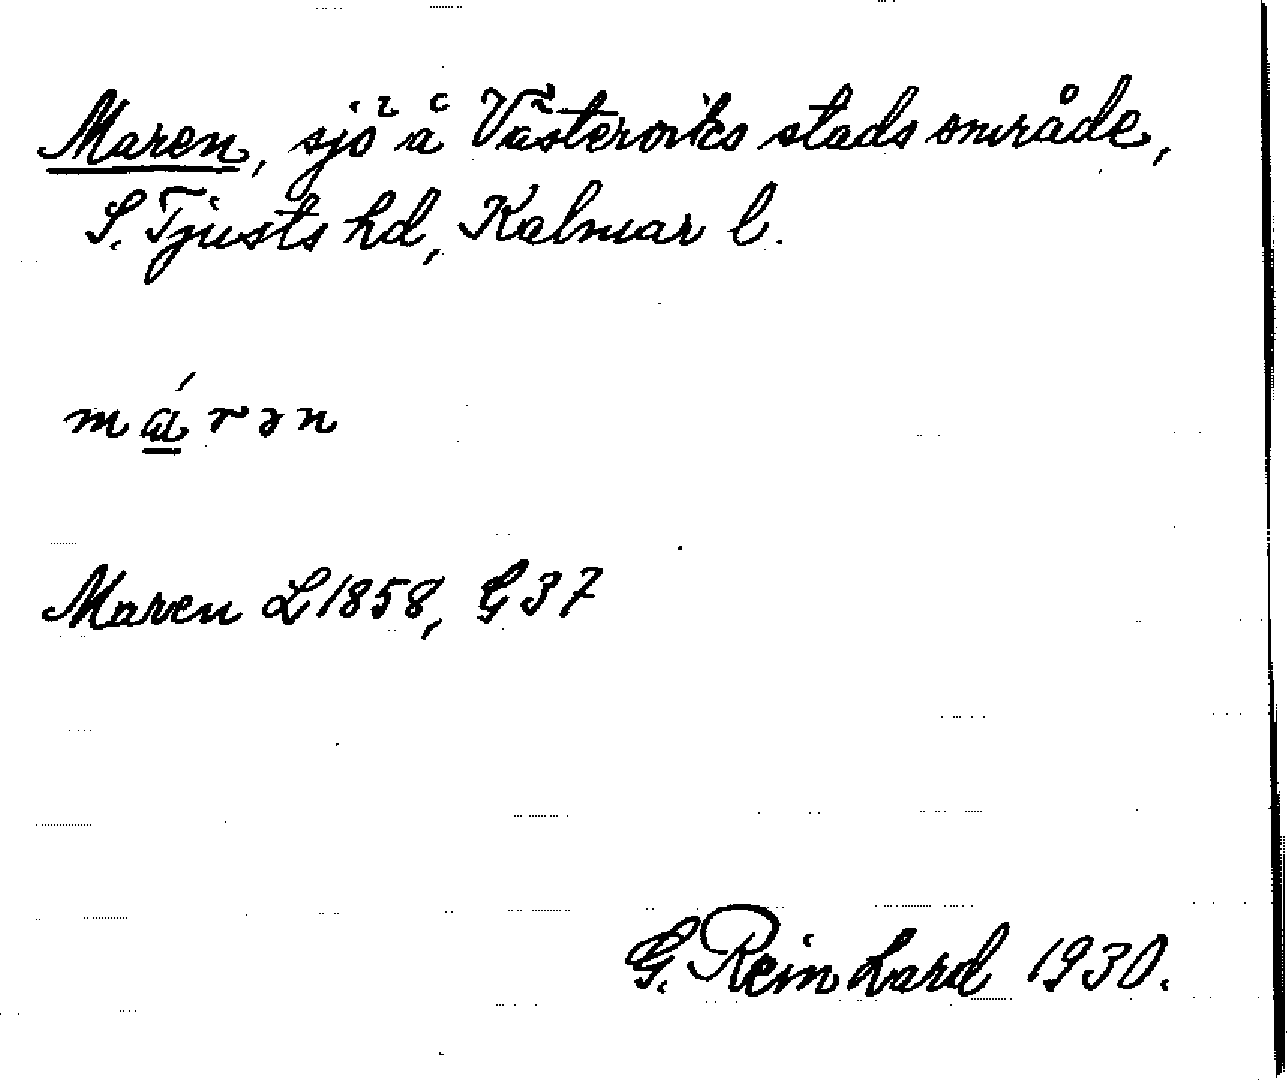 Maren, sjö å Västerviks stads område,
S. Tjusts hd, Kalmar l.
má̱rən
Maren L 1858, G 37
G. Reinhard 1930.